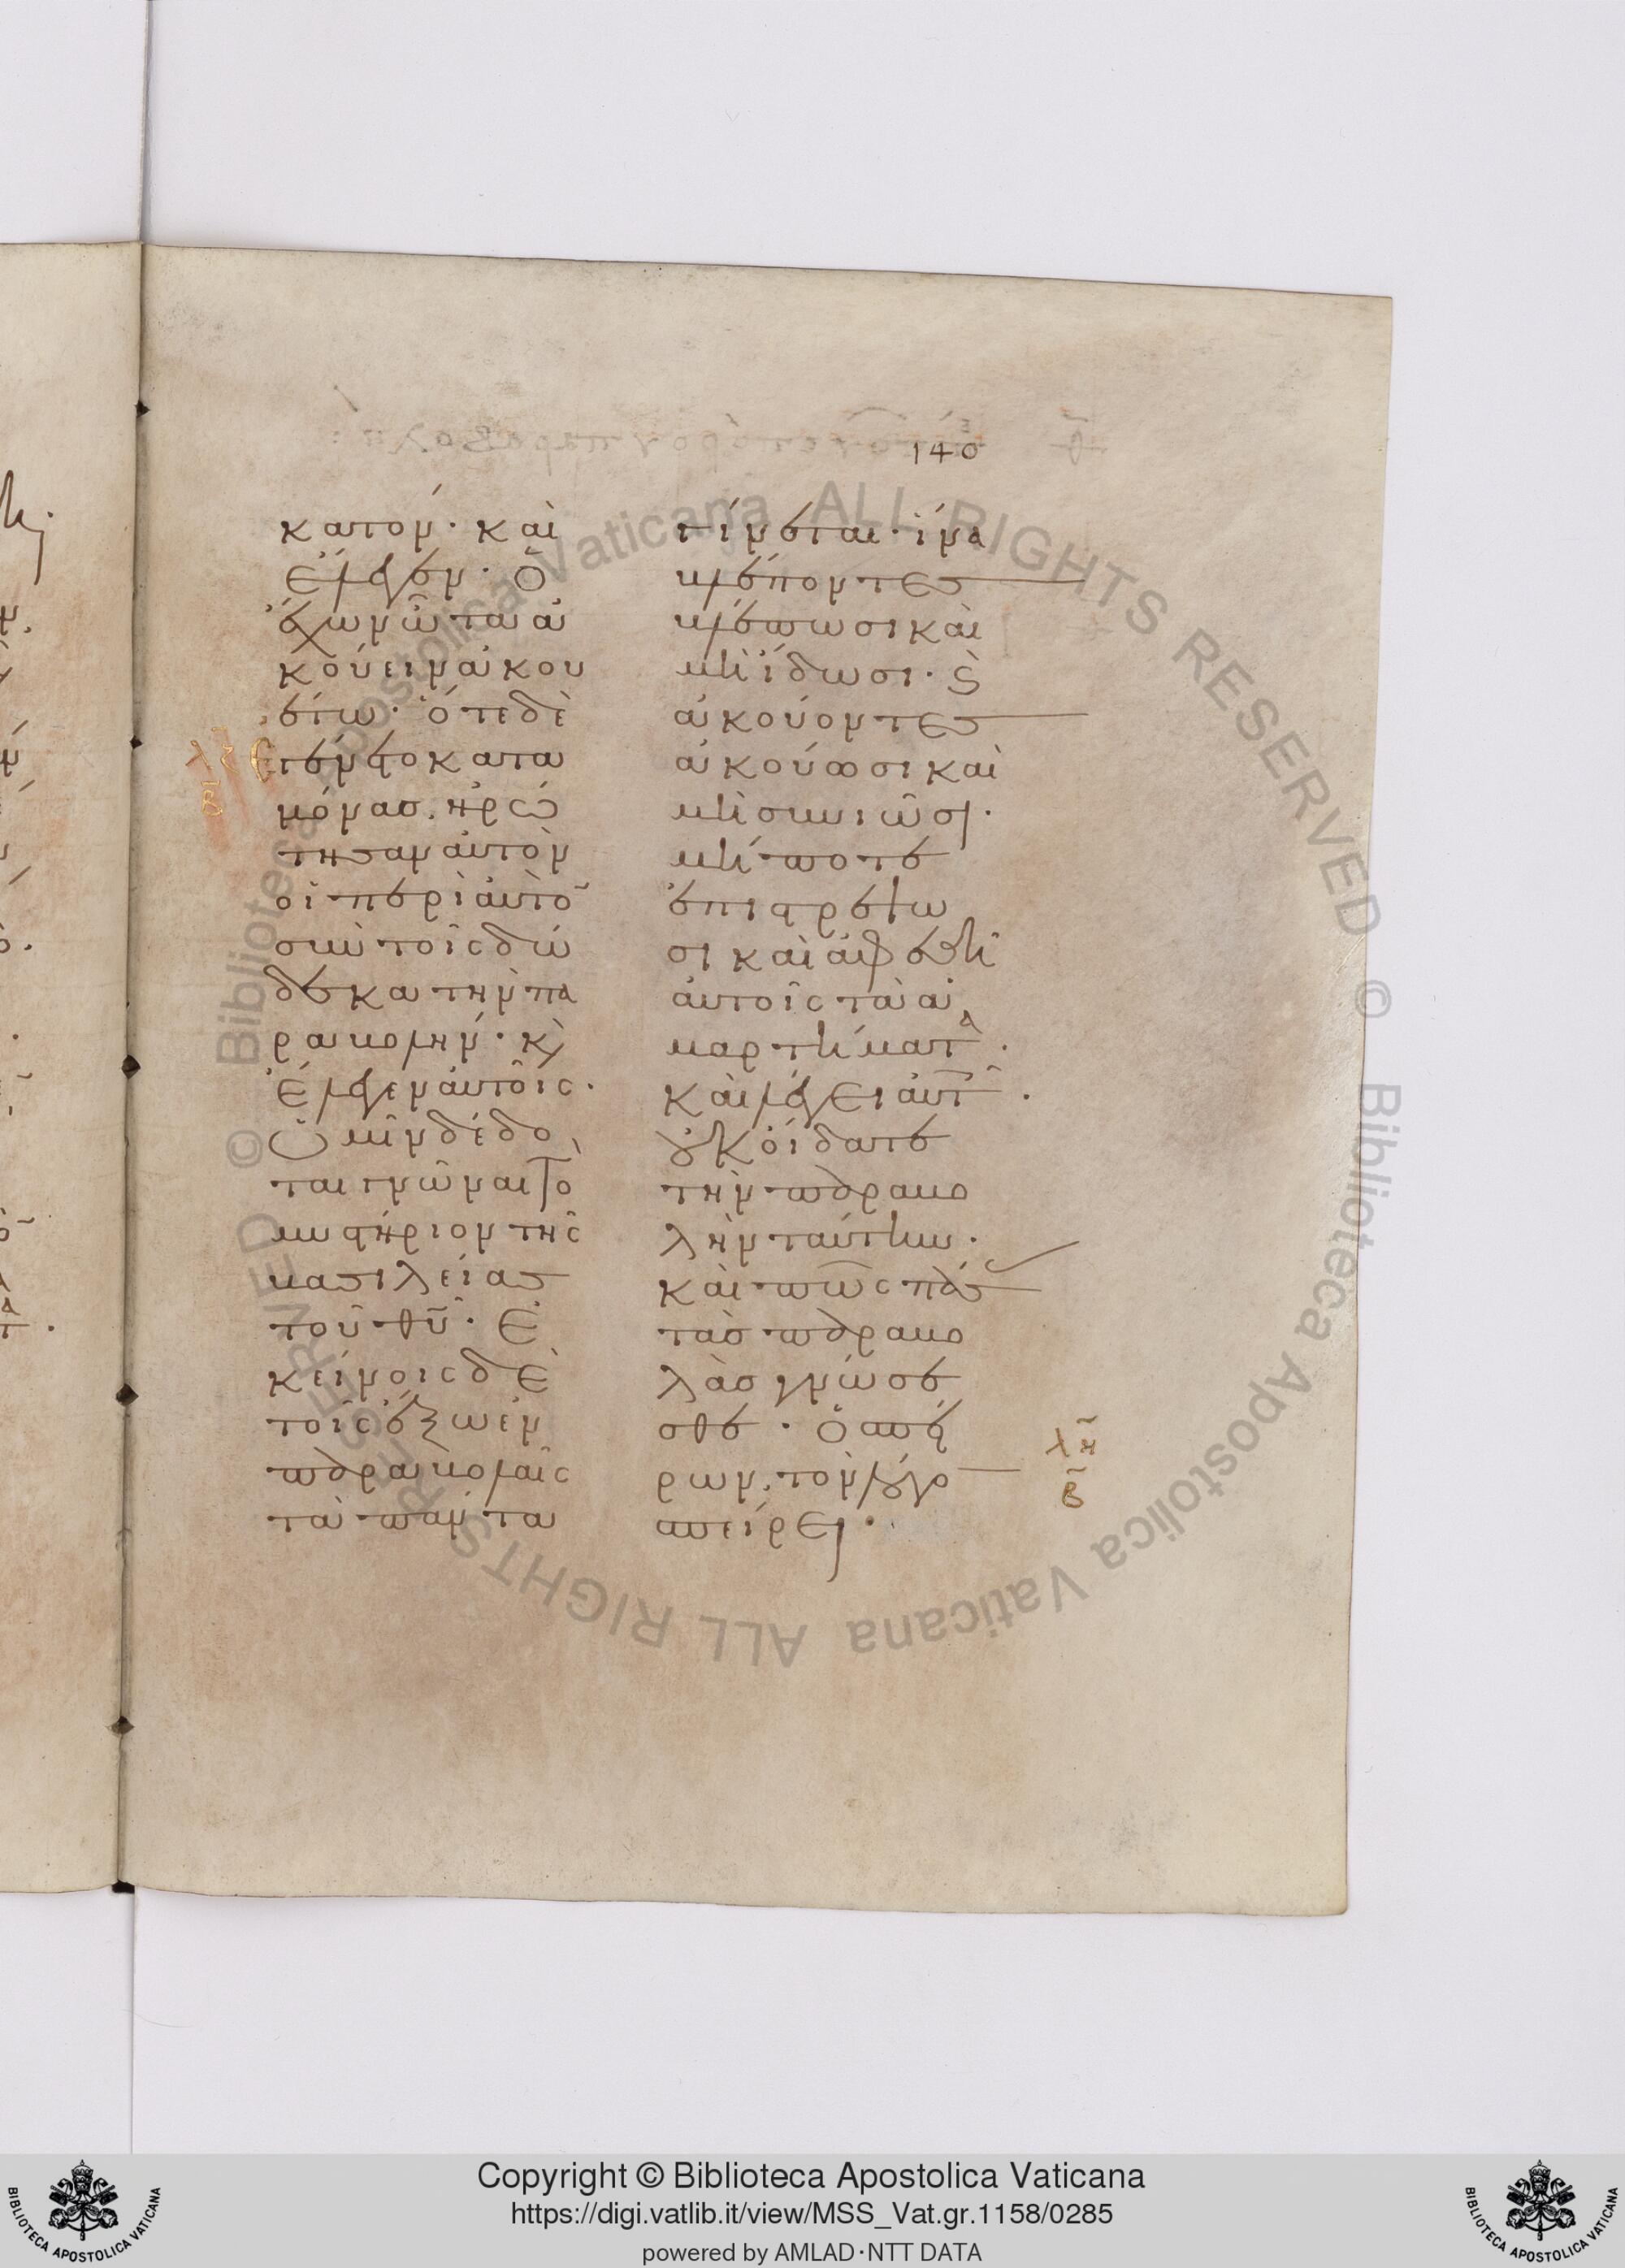 140
κατόν· καὶ
ἔλεγεν· ὁ
ἔχων ὦτα ἀ
κούειν ἀκου
έτω· ὅτε δὲ
ἐγένετο κατα
μόνας. ἠρώ
τησαν αὐτὸν
οἱ περὶ αὐτὸ̄
σὺν τοῖς δώ
δεκα τὴν πα
ραβολήν· κ̀
ἔλεγεν αὐτοῖς·
ὑμῖν δέδο
ται γνῶναι τὸ
μυστήριον τῆς
βασιλείας
τοῦ θῦ· ἐ
κείνοις δὲ
τοῖς ἔξω ἐν
παραβολαῖς
τὰ πάντα
γίνεται· ἵνα
βλέποντες
βλέπωσι καὶ
μὴ ἴδωσι· ϛ̀
ἀκούοντες
ἀκούωσι καὶ
μὴ συνιῶσι·
μήποτε
ἐπιστρέψω
σι καὶ ἀφεθῆ
αὐτοῖς τὰ ἁ
μαρτήματα·
καὶ λέγει αὐτοῖς·
οὐκ οἴδατε
τὴν παραβο
λὴν ταύτην·
καὶ πῶς πάσ
τὰς παραβο
λὰς γνώσε
σθε· ὁ σπεί
ρων. τὸν λόγο
σπείρει·
λη
β
Copyright © Biblioteca Apostolica Vaticana
https://digi.vatlib.it/view/MSS_Vat.gr.1158/0285
powered by AMLAD·NTT DATA
© Biblioteca Apostolica Vaticana ALL RIGHTS RESERVED © Biblioteca Apostolica Vaticana ALL RIGHTS RESERVED
BIBLIOTECA APOSTOLICA VATICANA
BIBLIOTECA APOSTOLICA VATICANA